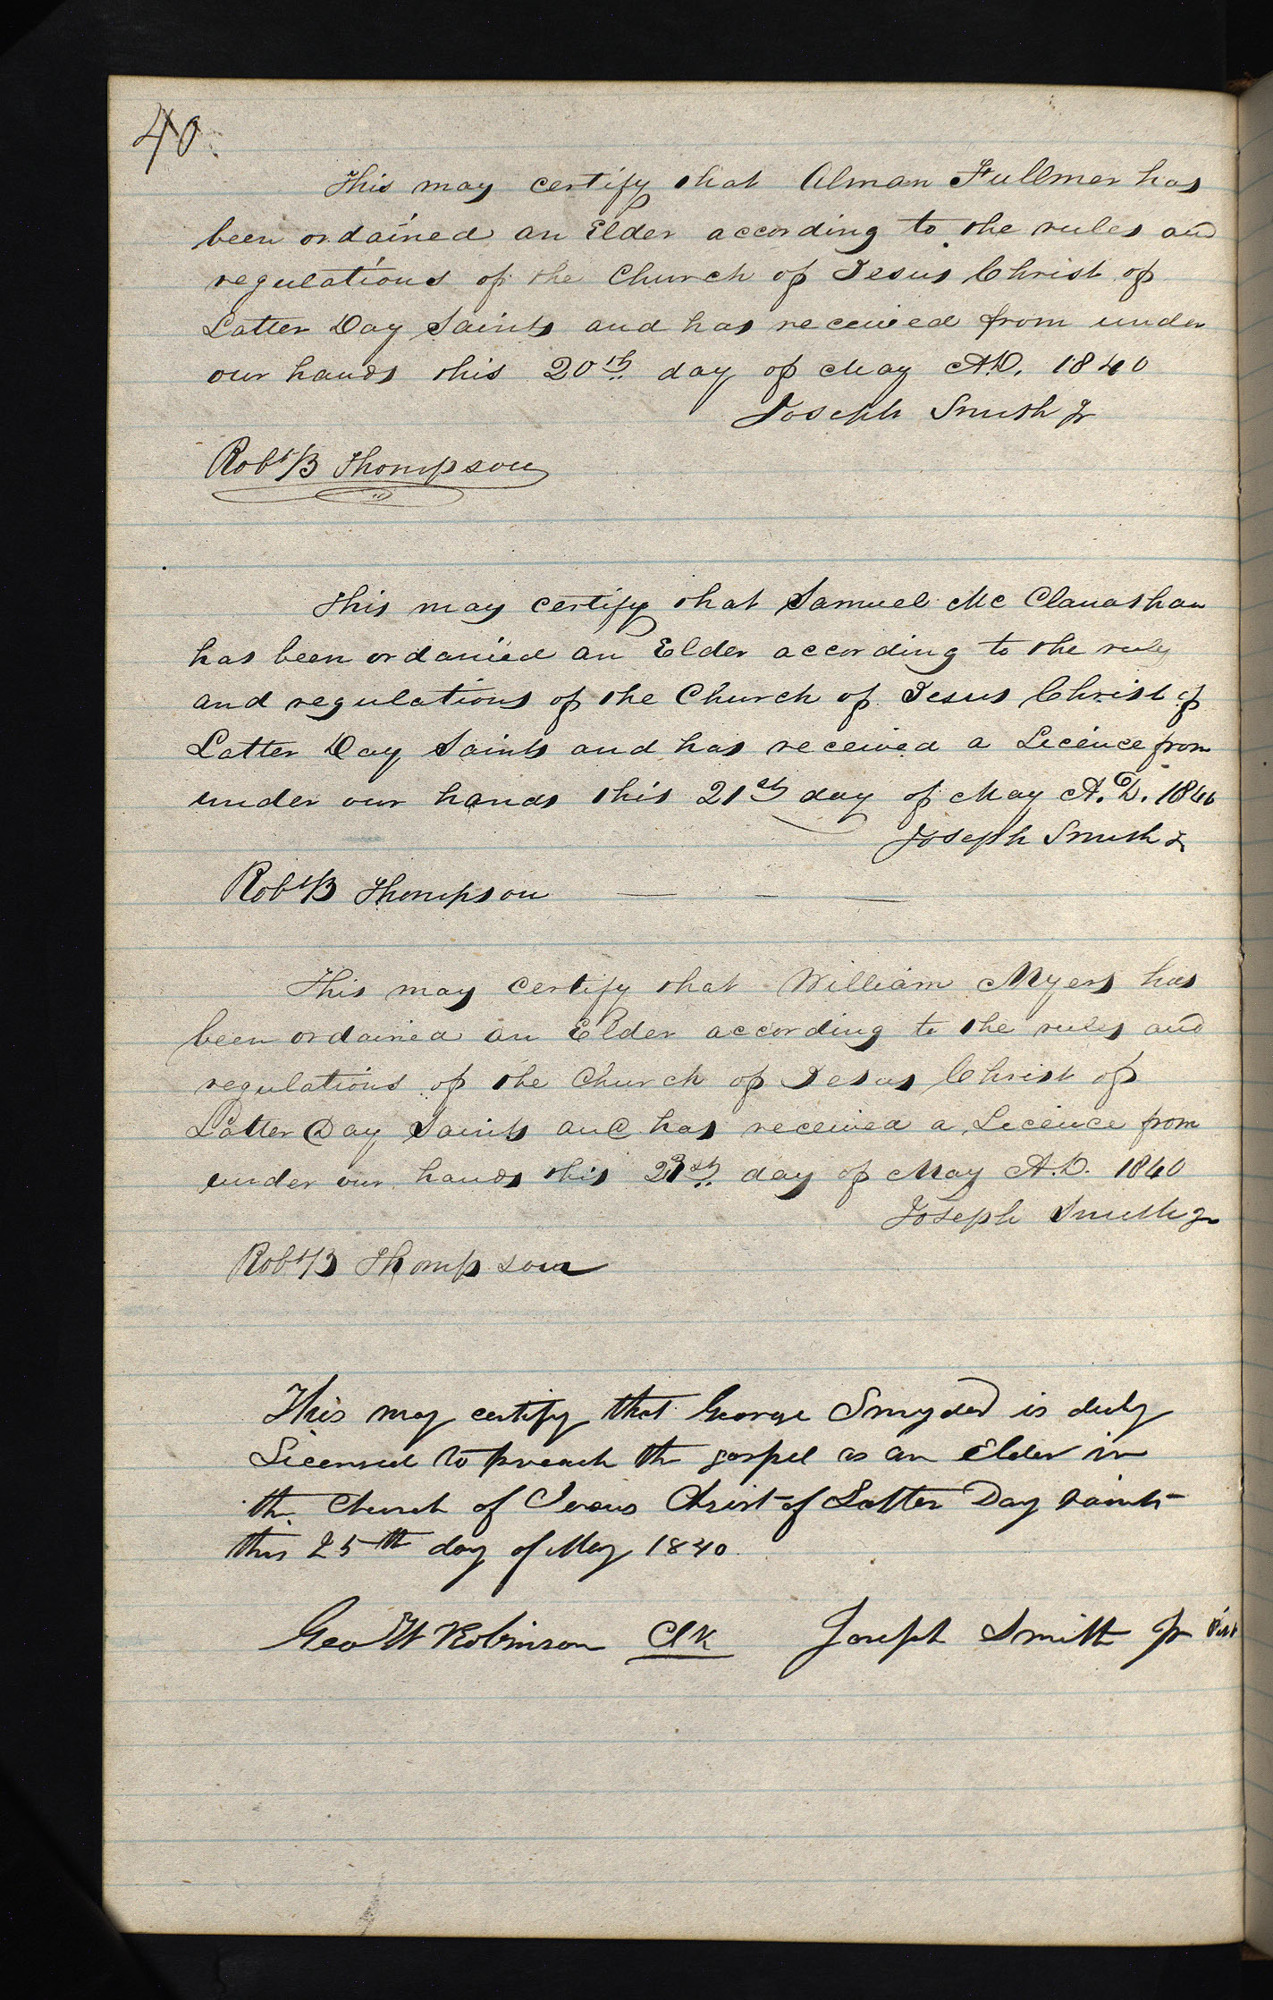 40
This may certify that Alman Fullmer has
been ordained an Elder according to the rules and
regulations of the Church of Jesus Christ of
Latter Day Saints and has received from under
our hands this 20th day of May A.D. 1840
Joseph Smith Jr
Robt B Thompson
This may certify that Samuel Mc Clanathan
has been ordained an Elder according to the rules
and regulations of the Church of Jesus Christ of
Latter Day Saints and has received a Licence from
under our hands this 21st day of May A.D. 1840
Joseph Smith Jr
Robt B Thompson
This may certify that William Myers has
been ordained an Elder according to the rules and
regulations of the Church of Jesus Christ of
Latter Day Saints and has received a Licence from
under our hands this 21st day of May A.D. 1840
Joseph Smith Jr
Robt B Thompson
This may certify that George Snyder is duly
Licensed to preach the gospel as an Elder in
the Church of Jesus Christ of Latter Day Saints
this 25th day of May 1840
Geo W Robinson Clk Joseph Smith Jr